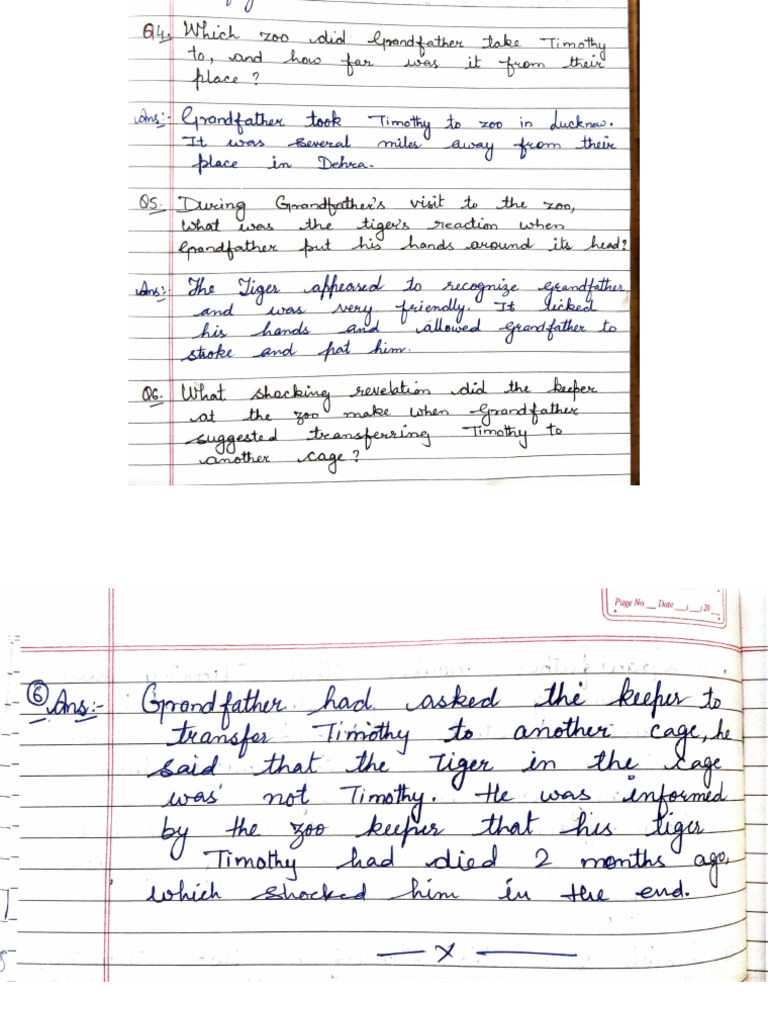 Q4. Which zoo did Grandfather take Timothy
to, and how far was it from their
place?
Ans:- Grandfather took Timothy to zoo in Lucknow.
It was several miles away from their
place in Dehra.
Q5. During Grandfather's visit to the zoo,
what was the tiger's reaction when
Grandfather put his hands around its head?
Ans:- The Tiger appeared to recognize Grandfather
and was very friendly. It licked
his hands and allowed Grandfather to
stroke and pat him.
Q6. What shocking revelation did the keeper
at the zoo make when Grandfather
suggested transferring Timothy to
another cage?
Page No. __ Date __/__/20__
6 Ans:- Grandfather had asked the keeper to
transfer Timothy to another cage, he
said that the Tiger in the cage
was not Timothy. He was informed
by the zoo keeper that his tiger
Timothy had died 2 months ago,
which shocked him in the end.
— x —